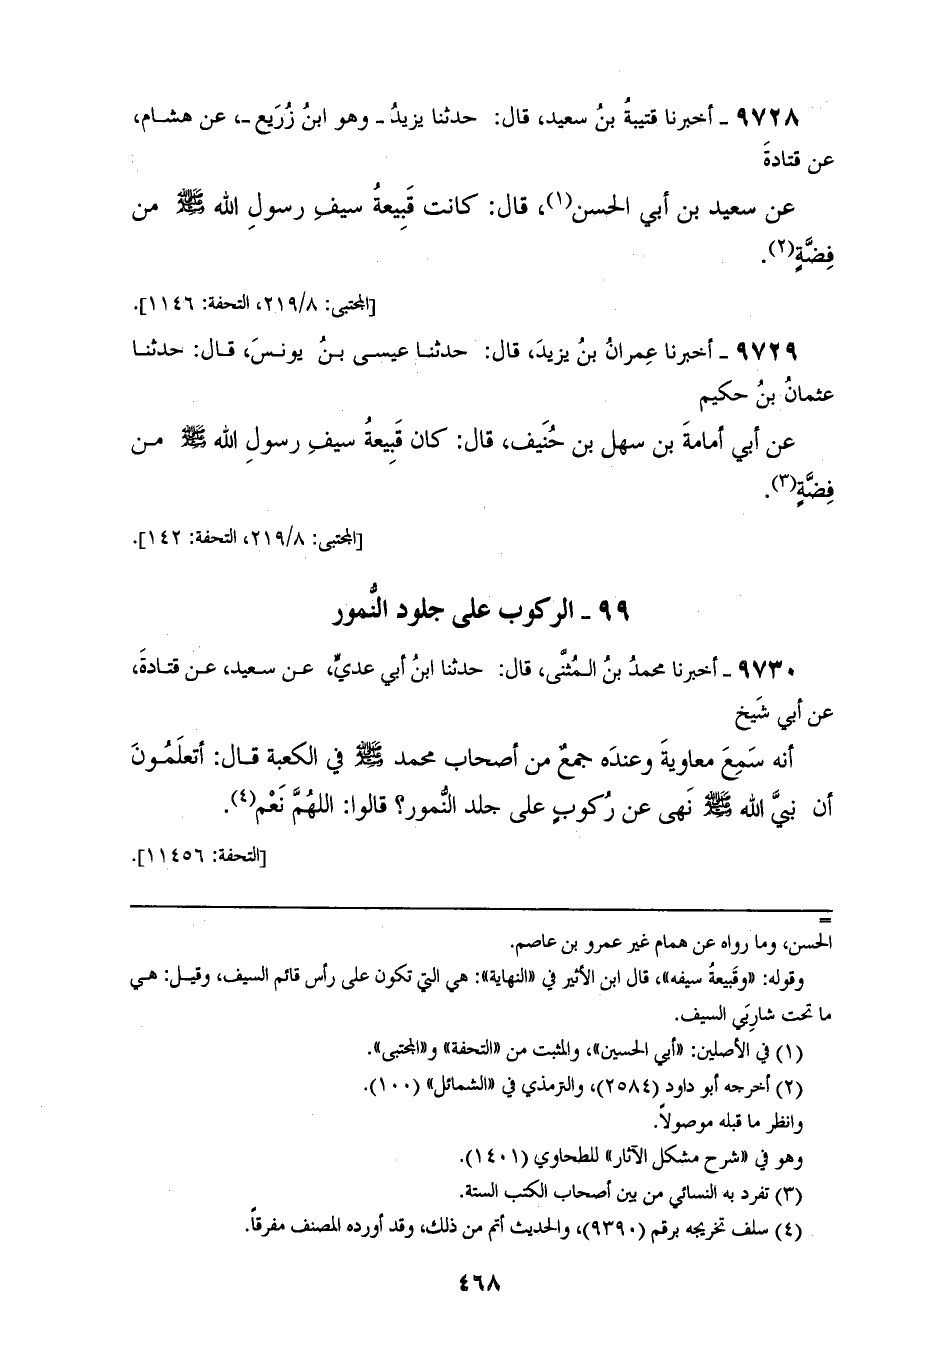 ٩٧٢٨ ـ أخبرنا قتيبةُ بنُ سعيد، قال: حدثنا يزيدُ ـ وهو ابنُ زُرَيع ـ، عن هشـام،
عن قتادةَ
عن سعيد بن أبي الحسن(١)، قال: كانت قَبِيعةُ سيفِ رسولِ الله ﷺ من
فِضَّةٍ(٢).
[المجتبى: ٢١٩/٨، التحفة: ١١٤٦].
٩٧٢٩ ـ أخبرنا عِمرانُ بنُ يزيدَ، قال: حدثنـا عيسـى بـنُ يونـسَ، قـال: حدثنـا
عثمانُ بنُ حكيم
عن أبي أمامةَ بن سهل بن حُنَيف، قال: كان قَبِيعةُ سيفِ رسولِ الله ﷺ مـن
فِضَّةٍ(٣).
[المجتبى: ٢١٩/٨، التحفة: ١٤٢].
٩٩ ـ الركوب على جلود النُّمور
٩٧٣٠ ـ أخبرنا محمدُ بنُ الـمُثنَّى، قال: حدثنا ابنُ أبي عديٍّ، عـن سـعيد، عـن قتـادةَ،
عن أبي شَيخ
أنه سَمِعَ معاويةَ وعندَه جمعٌ من أصحاب محمد ﷺ في الكعبة قـال: أتعلَمُـونَ
أن نبيَّ الله ﷺ نَهى عن رُكوبٍ على جلد النُّمور؟ قالوا: اللهُمَّ نَعْم(٤).
[التحفة: ١١٤٥٦].
=
الحسن، وما رواه عن همام غير عمرو بن عاصم.
وقوله: «وقَبيعةُ سيفه»، قال ابن الأثير في «النهاية»: هي التي تكون على رأس قائم السيف، وقيـل: هـي
ما تحت شارِبَي السيف.
(١) في الأصلين: «أبي الحسين»، والمثبت من «التحفة» و«المجتبى».
(٢) أخرجه أبو داود (٢٥٨٤)، والترمذي في «الشمائل» (١٠٠).
وانظر ما قبله موصولاً.
وهو في «شرح مشكل الآثار» للطحاوي (١٤٠١).
(٣) تفرد به النسائي من بين أصحاب الكتب الستة.
(٤) سلف تخريجه برقم (٩٣٩٠)، والحديث أتم من ذلك، وقد أورده المصنف مفرقاً.
٤٦٨